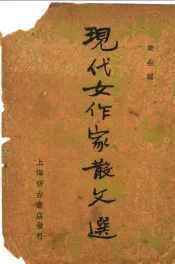 俊生編
現代女作家散文選
上海仿古書店發行